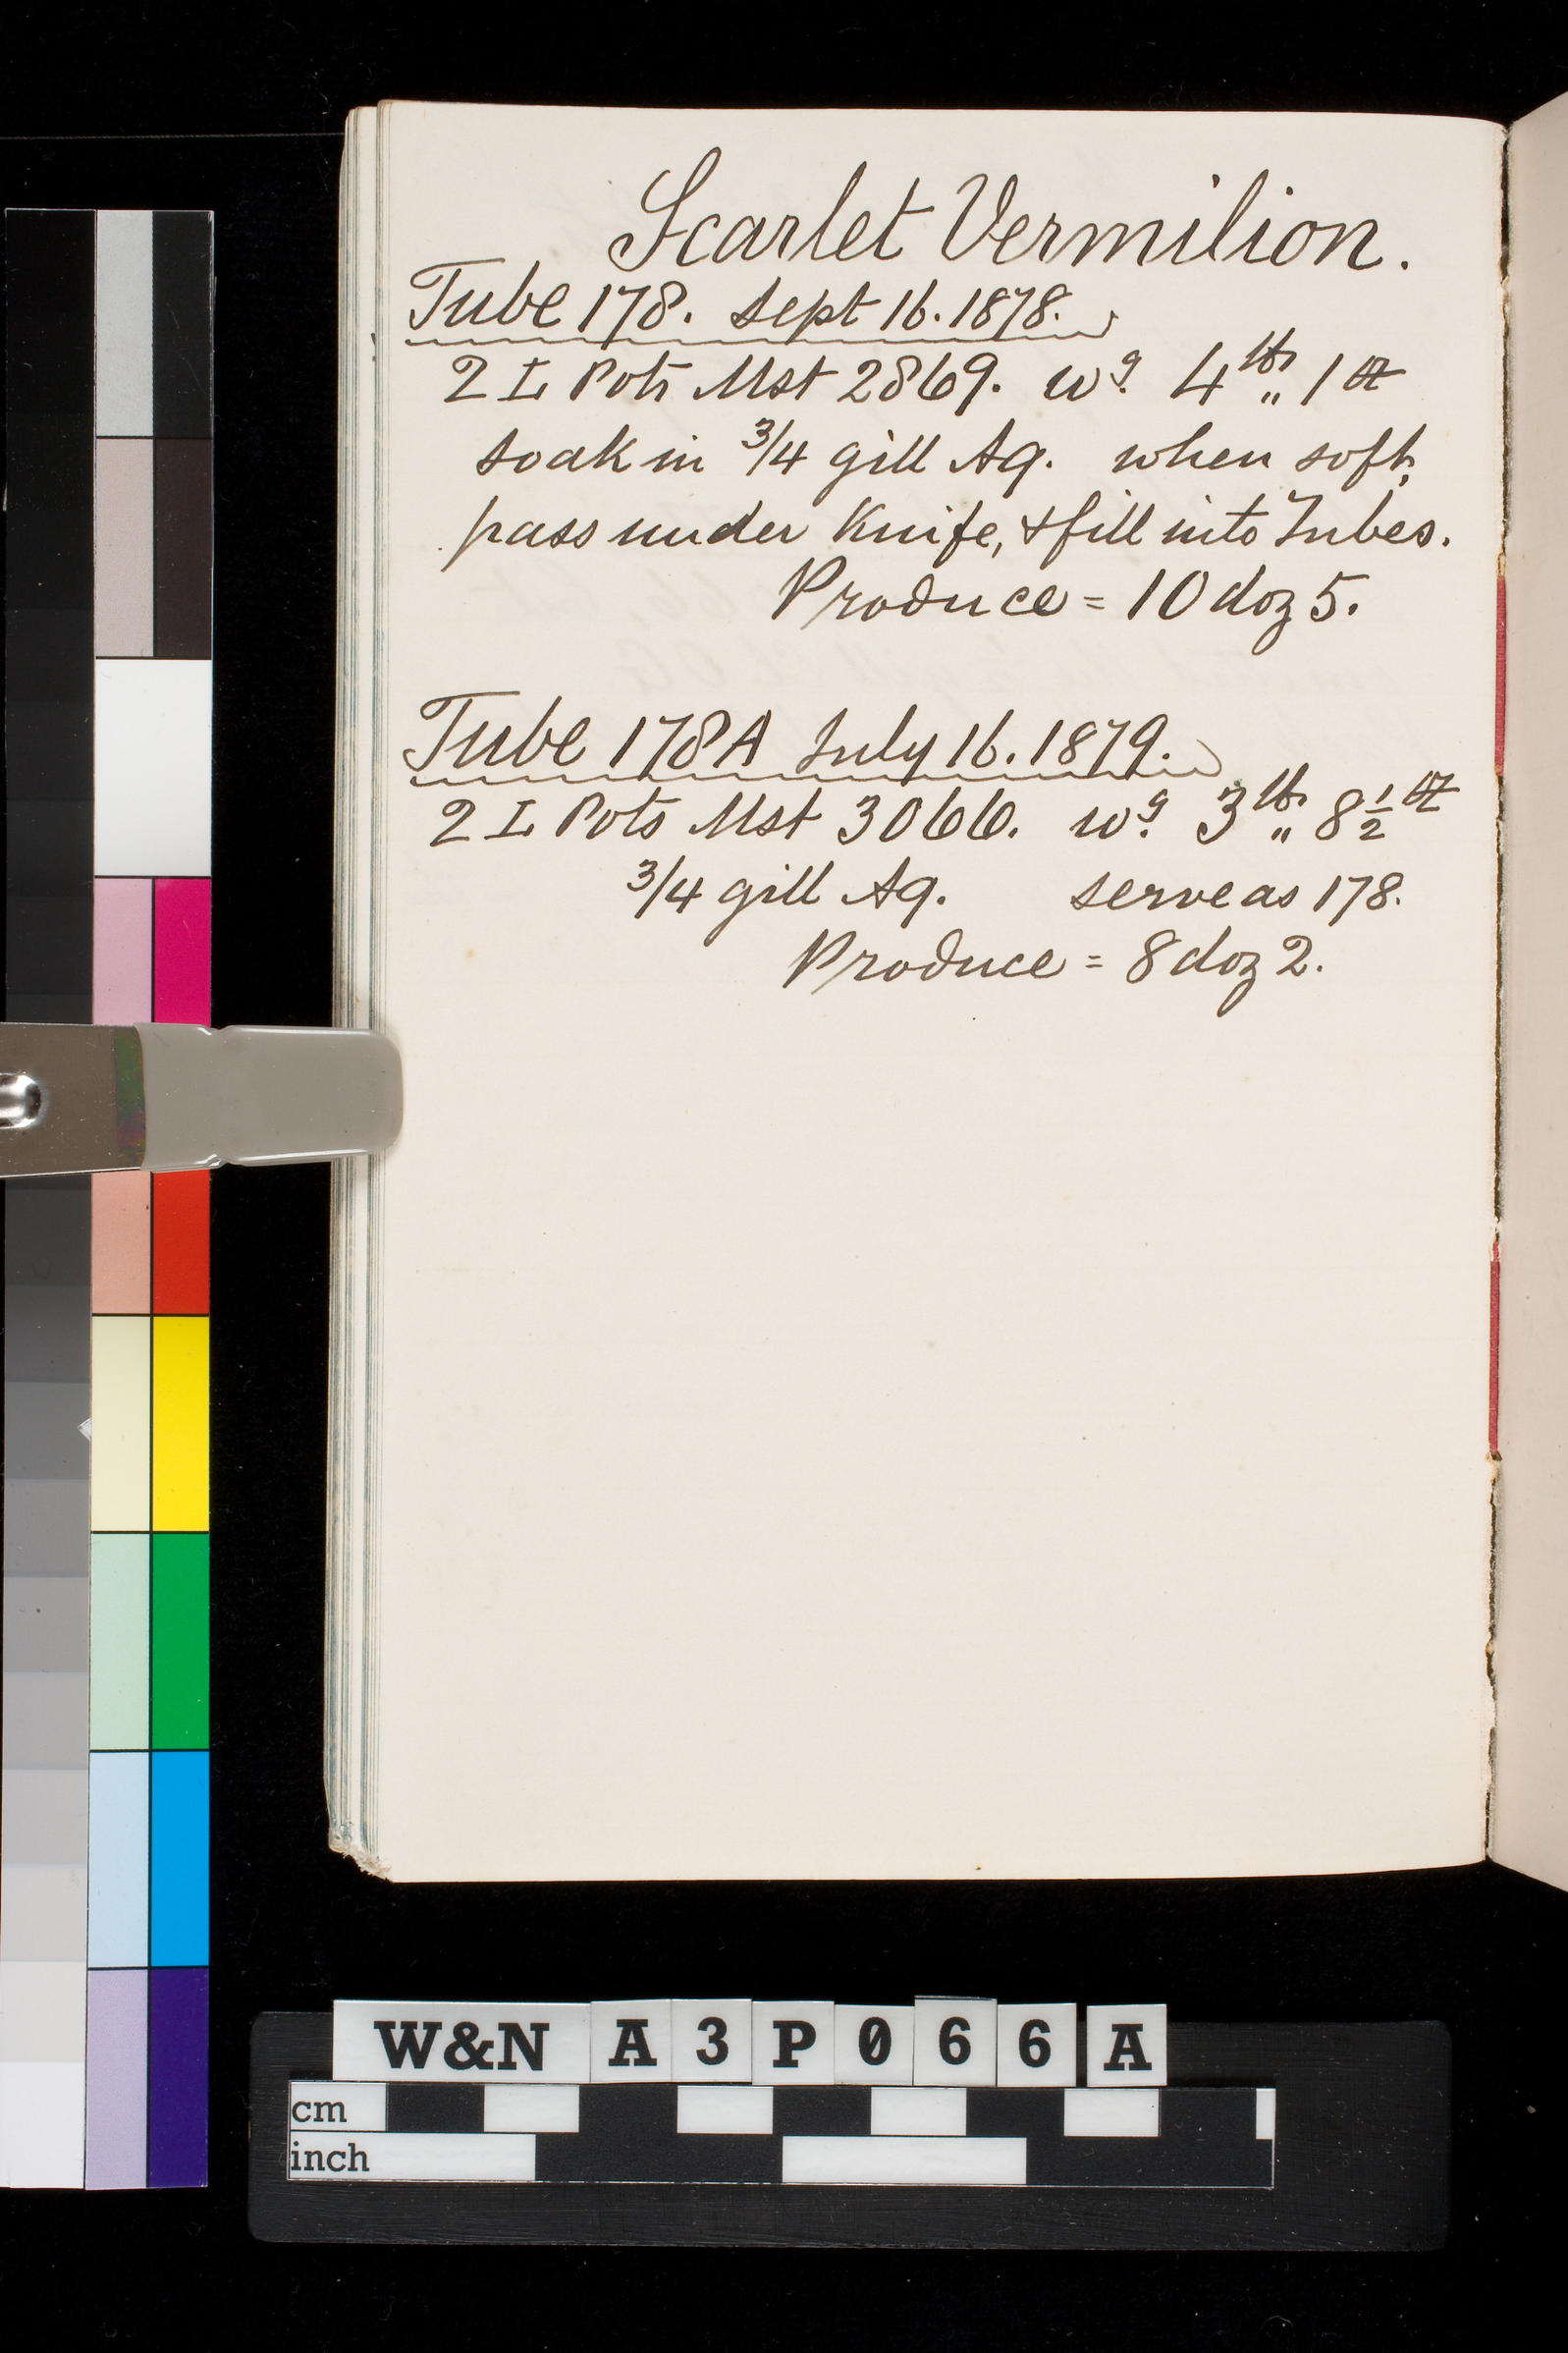 Scarlet Vermilion.
Tube 178. Sept 16. 1878.
2 L Pots Mst 2869. wg. 4 lb,, 1 oz
soak in 3/4 gill Aq. when soft,
pass under Knife, & fill into Tubes.
Produce = 10 doz 5.
Tube 178A July 16. 1879.
2 L Pots Mst 3066. wg. 3 lb,, 8 1/2 oz
3/4 gill Aq. serve as 178.
Produce = 8 doz 2.
W&N A3P066A
cm
inch